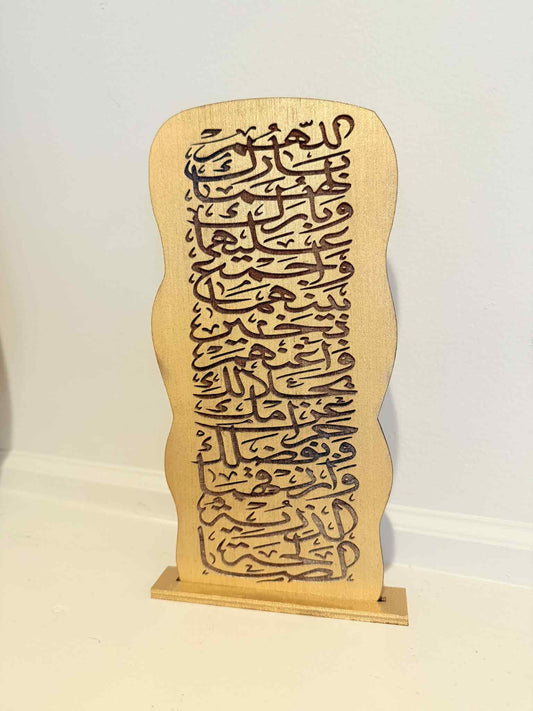 اللهم
بارك
لهما
وبارك
عليهما
واجمع
بينهما
بخير
وأغنهم
بحلالك
عن حرامك
وفضلك
وارزقهما
الذرية
الصالحة